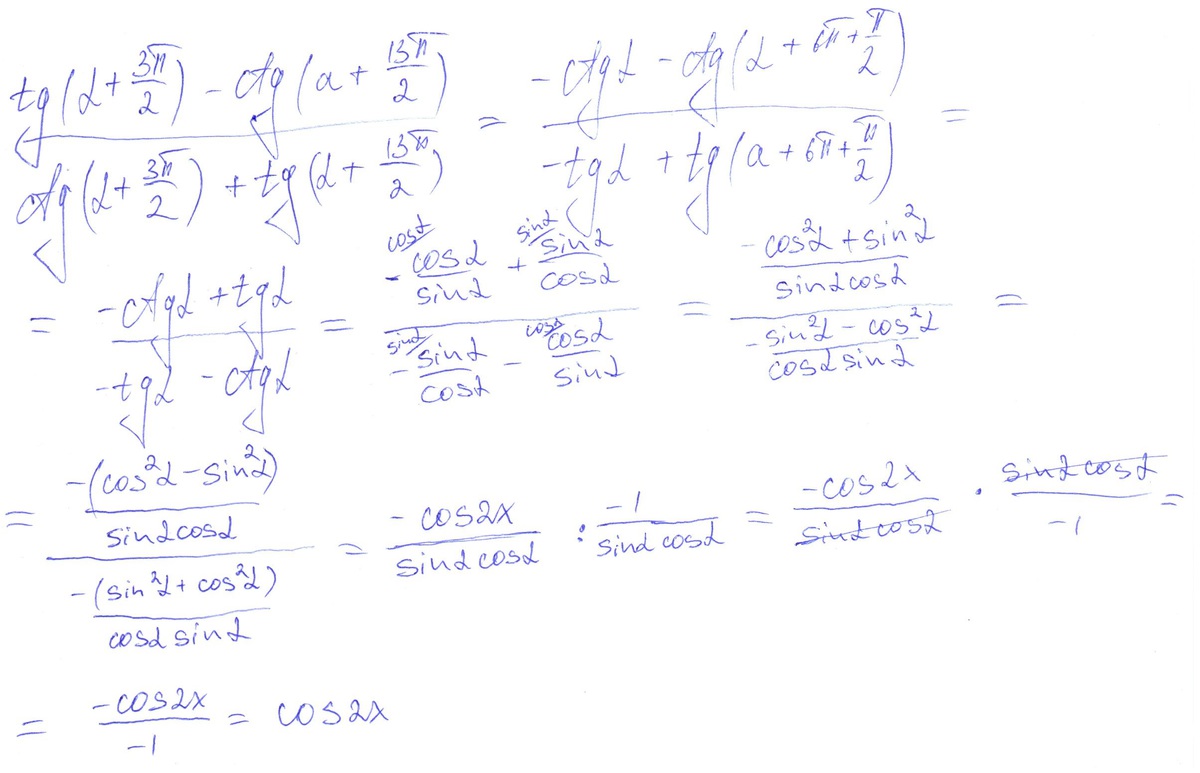 (tg(α + 3π/2) - ctg(a + 13π/2)) / (ctg(α + 3π/2) + tg(α + 13π/2)) = (-ctgα - ctg(α + 6π + π/2)) / (-tgα + tg(a + 6π + π/2)) =
= (-ctgα + tgα) / (-tgα - ctgα) = (-cosα/sinα (cosα + sinα/cosα (sinα) / (-sinα/cosα (sinα - cosα/sinα (cosα) = ((-cos²α + sin²α) / (sinα cosα)) / ((-sin²α - cos²α) / (cosα sinα)) =
= (-(cos²α - sin²α) / (sinα cosα)) / (-(sin²α + cos²α) / (cosα sinα)) = -cos2x / (sinα cosα) : -1 / (sinα cosα) = -cos2x / (sinα cosα) · (sinα cosα) / -1 =
= -cos2x / -1 = cos2x